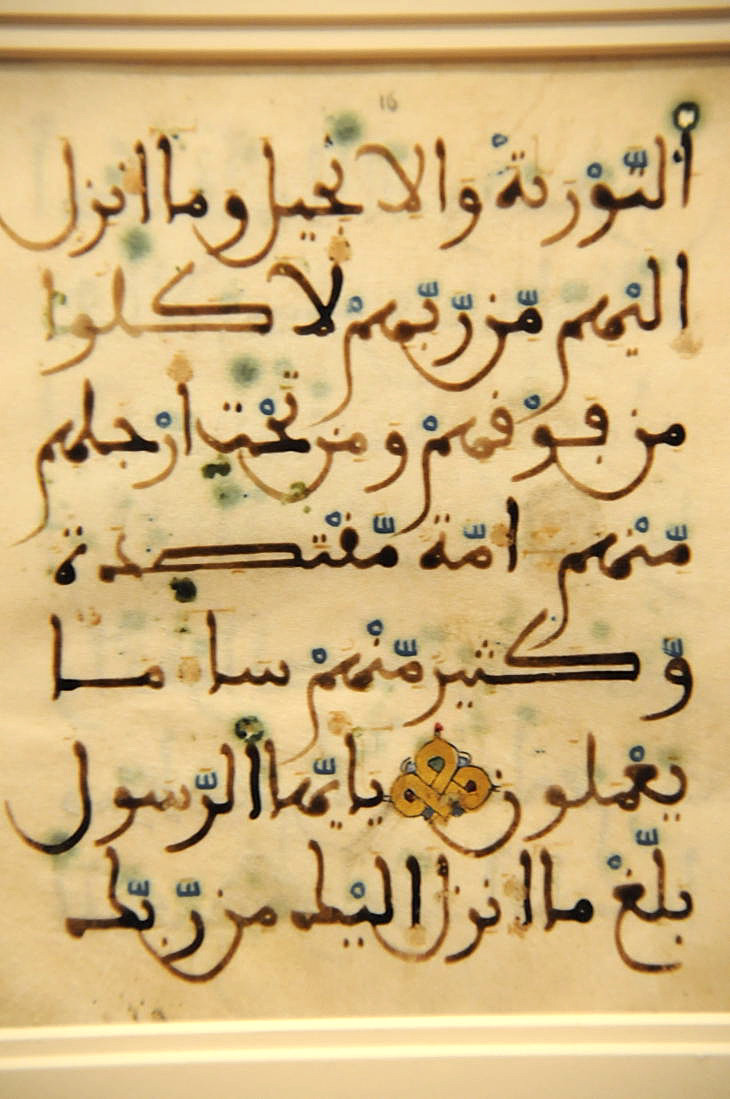 16
التّوْرىةَ والانجيل وما انزل
اليْهم مّن رّبّهمْ لاكلوا
من فوْقهمْ ومن تحْت ارْجلهم
مّنْهم امّة مّقْتصدة
وّكثير مّنْهمْ سا ما
يعْملون يايّها الرّسول
بلّغْ ما انزل اليْك من رّبّك